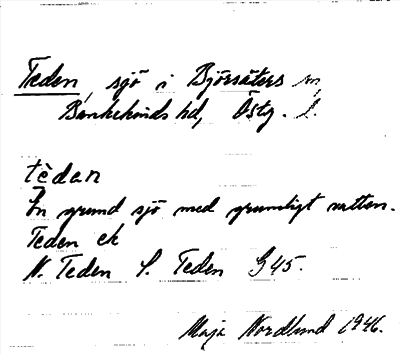 Teden, sjö i Björsäters sn,
Bankekinds hd, Östg. l.
tèdan
En grund sjö med grumligt vatten.
Teden ek
N. Teden S. Teden G45.
Maja Nordlund 1946.